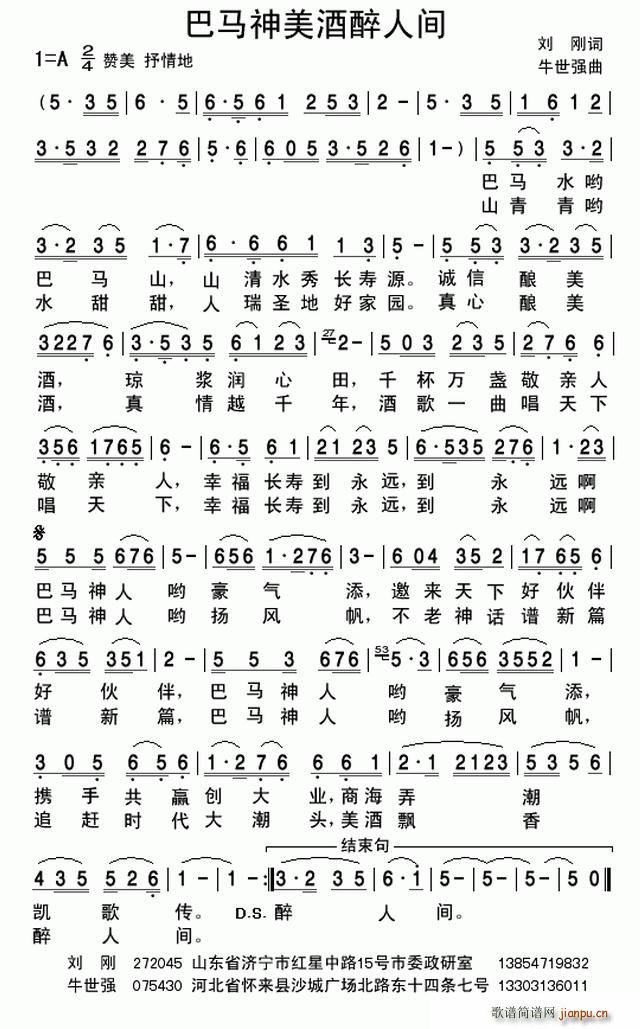 巴马神美酒醉人间
1=A 2/4 赞美 抒情地
刘 刚词
牛世强曲
(5· 35 | 6· 5 | 6·561 253 | 2· 6 | 2 - | 5· 35 | 1612 |
3·532 276 | 5·6 | 605 3·526 | 1 -) | 5 53 3·2 |
巴马水哟
山青青哟
3·235 1·7 | 6·661 13 | 5 - | 5 53 3·235 |
巴马山,山清水秀长寿源。诚信酿美
水甜甜,人瑞圣地好家园。真心酿美
32276 | 3·535 6123 | 27 2 - | 503 235 | 2276 |
酒,琼浆润心田,千杯万盏敬亲人
酒,真情越千年,酒歌一曲唱天下
356 1765 | 6 - | 6·5 61 | 21 235 | 6·535 276 | 1·23 |
敬亲人,幸福长寿到永远,到永远啊
唱天下,幸福长寿到永远,到永远啊
555 676 | 5 - | 656 1·276 | 3 - | 604 352 | 17 65 |
巴马神人哟豪气添,邀来天下好伙伴
巴马神人哟扬风帆,不老神话谱新篇
635 351 | 2 - | 553 676 | 53 5·3 | 656 3552 | 1 - |
好伙伴,巴马神人哟豪气添,
谱新篇,巴马神人哟扬风帆,
305 656 | 1·276 | 356 | 2·1 2123 |
携手共赢创大业,商海弄潮
追赶时代大潮头,美酒飘香
结束句
435 526 | 1 - | 1 - :‖ 3·235 | 6·1 | 5 - | 5 - | 50 ‖
凯歌传。D.S.醉人间。
醉人间。
刘 刚 272045 山东省济宁市红星中路15号市委政研室 13854719832
牛世强 075430 河北省怀来县沙城广场北路东十四条七号 13303136011
歌谱简谱网
jianpu.cn